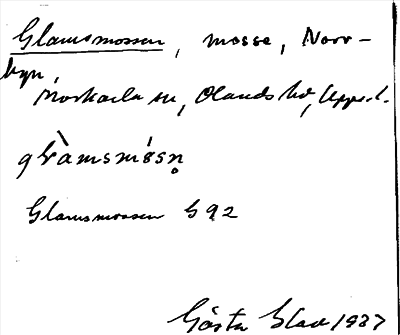 Glamsmossen, mosse, Norr-
byn,
Morkarla sn, Olands hd, Uppl.
glàmsmósn̥
Glamsmossen G 92
Gösta Blad 1937